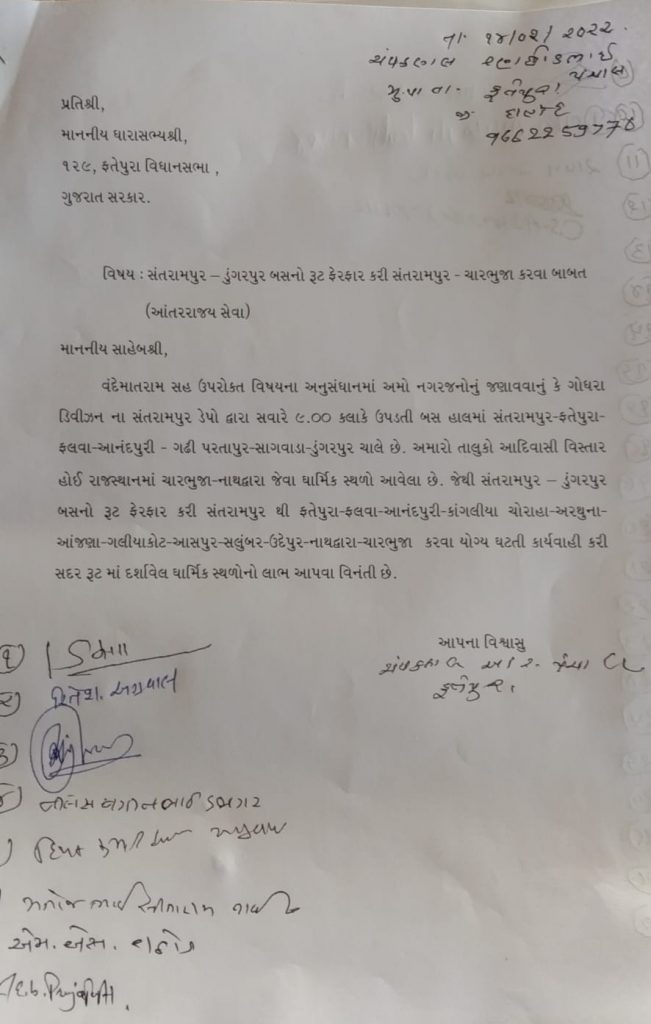 તા. ૧૪/૦૨/૨૦૨૨.
ચંપકલાલ
મુ.પો તા. ફતેપુરા
જી. દાહોદ
પ્રતિશ્રી,
માનનીય ધારાસભ્યશ્રી,
૧૨૯, ફતેપુરા વિધાનસભા ,
ગુજરાત સરકાર.
વિષય : સંતરામપુર – ડુંગરપુર બસનો રૂટ ફેરફાર કરી સંતરામપુર - ચારભુજા કરવા બાબત
(આંતરરાજય સેવા)
માનનીય સાહેબશ્રી,
વંદેમાતરમ સહ ઉપરોકત વિષયના અનુસંધાનમાં અમો નગરજનોનું જણાવવાનું કે ગોધરા
ડિવીઝન ના સંતરામપુર ડેપો દ્વારા સવારે ૯.૦૦ કલાકે ઉપડતી બસ હાલમાં સંતરામપુર-ફતેપુરા-
ફલવા-આનંદપુરી - ગઢી પરતાપુર-સાગવાડા-ડુંગરપુર ચાલે છે. અમારો તાલુકો આદિવાસી વિસ્તાર
હોઈ રાજસ્થાનમાં ચારભુજા-નાથદ્વારા જેવા ધાર્મિક સ્થળો આવેલા છે. જેથી સંતરામપુર – ડુંગરપુર
બસનો રૂટ ફેરફાર કરી સંતરામપુર થી ફતેપુરા-ફલવા-આનંદપુરી-કાંગલીયા ચોરાહા-અરથુના-
આંજણા-ગલીયાકોટ-આસપુર-સલુંબર-ઉદેપુર-નાથદ્વારા-ચારભુજા કરવા યોગ્ય ઘટતી કાર્યવાહી કરી
સદર રૂટ માં દર્શાવેલ ધાર્મિક સ્થળોનો લાભ આપવા વિનંતી છે.
આપના વિશ્વાસુ
ચંપકલાલ આર. પંચાલ
ફતેપુરા.
૧)
૨) રિતેશ. અગ્રવાલ
૩)
૪)
એમ. એસ. રાઠોડ